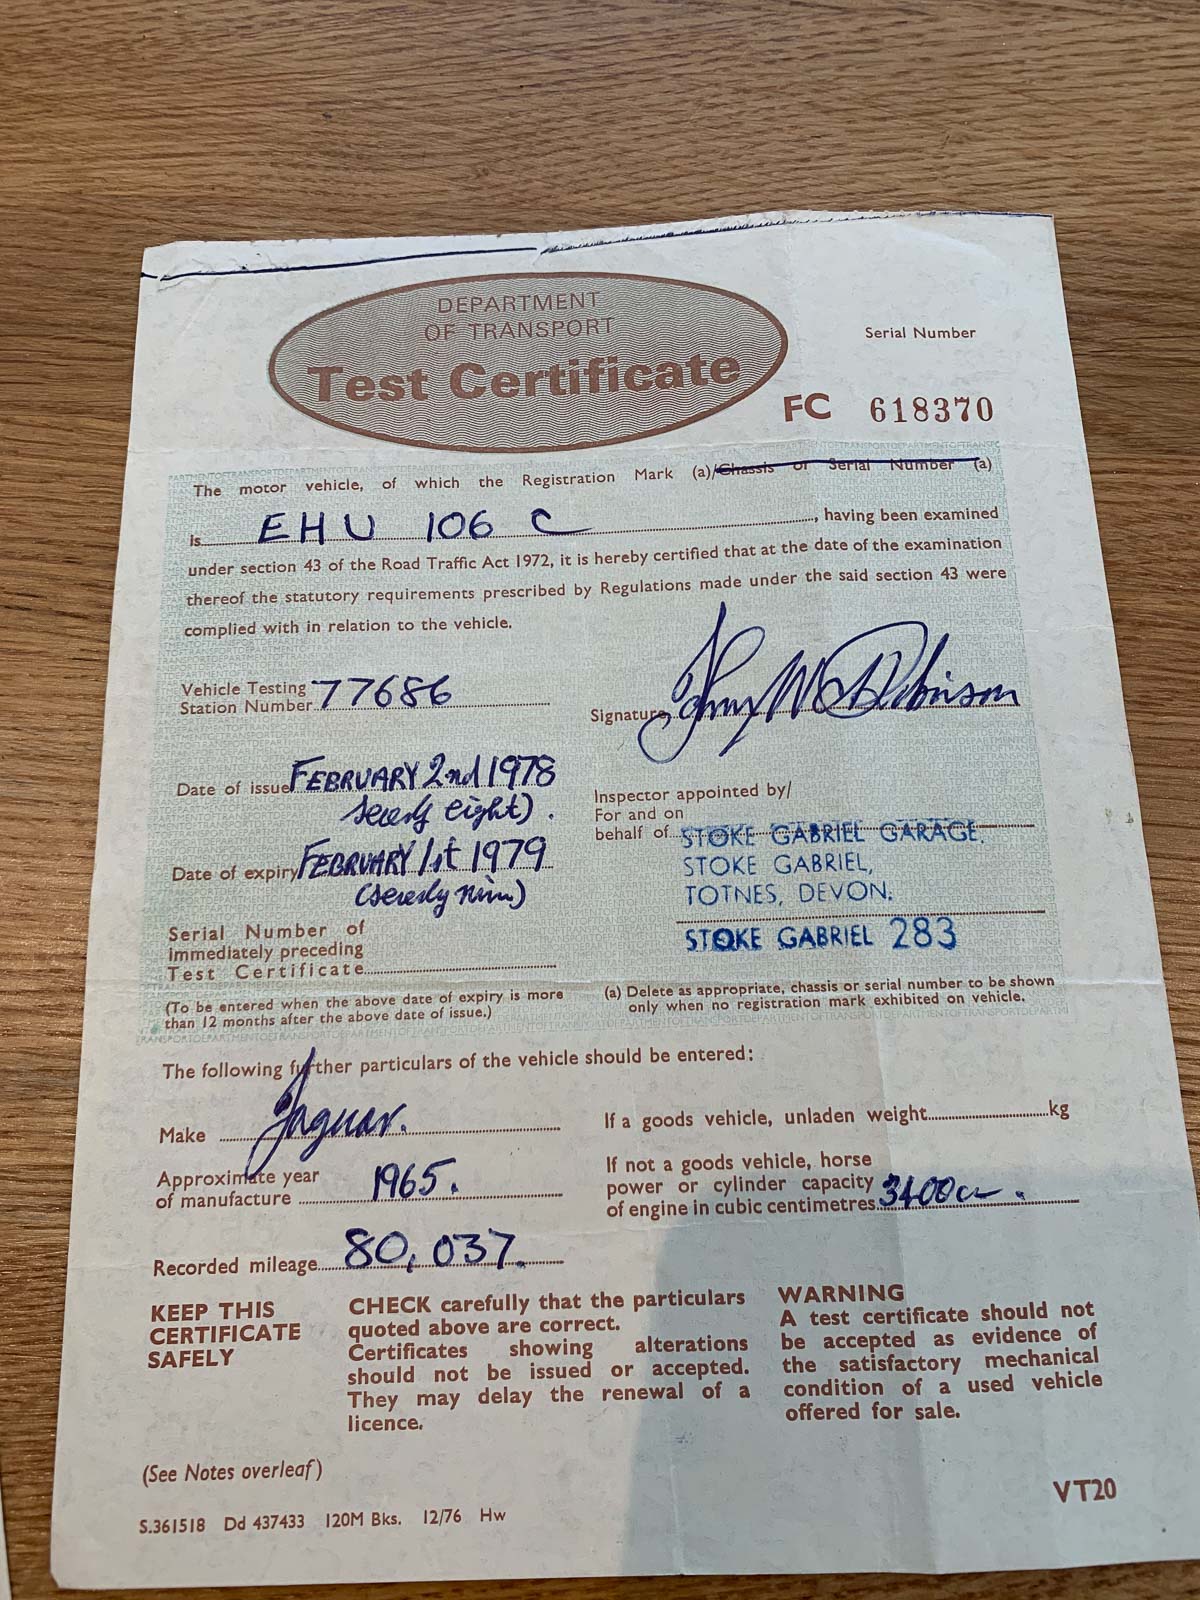 DEPARTMENT
OF TRANSPORT
Test Certificate
Serial Number
FC 618370
The motor vehicle, of which the Registration Mark (a)/Chassis or Serial Number (a)
is EHU 106 C, having been examined
under section 43 of the Road Traffic Act 1972, it is hereby certified that at the date of the examination
thereof the statutory requirements prescribed by Regulations made under the said section 43 were
complied with in relation to the vehicle.
Vehicle Testing
Station Number 77686
Signature
Date of issue FEBRUARY 2nd 1978
eight).
Date of expiry FEBRUARY 1st 1979
Serial Number of
Immediately preceding
Test Certificate
(To be entered when the above date of expiry is more
than 12 months after the above date of issue.)
Inspector appointed by/
For and on
behalf of STOKE GABRIEL GARAGE,
STOKE GABRIEL,
TOTNES, DEVON.
STOKE GABRIEL 283
(a) Delete as appropriate, chassis or serial number to be shown
only when no registration mark exhibited on vehicle.
The following further particulars of the vehicle should be entered:
Make Jaguar.
If a goods vehicle, unladen weight kg
Approximate year
of manufacture 1965.
If not a goods vehicle, horse
power or cylinder capacity
of engine in cubic centimetres 3400cc.
Recorded mileage 80,037.
KEEP THIS
CERTIFICATE
SAFELY
CHECK carefully that the particulars
quoted above are correct.
Certificates showing alterations
should not be issued or accepted.
They may delay the renewal of a
licence.
WARNING
A test certificate should not
be accepted as evidence of
the satisfactory mechanical
condition of a used vehicle
offered for sale.
(See Notes overleaf)
VT20
S.361518 Dd 437433 120M Bks. 12/76 Hw